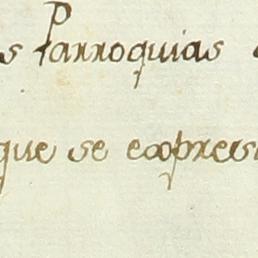 s Parroquias
que se expres